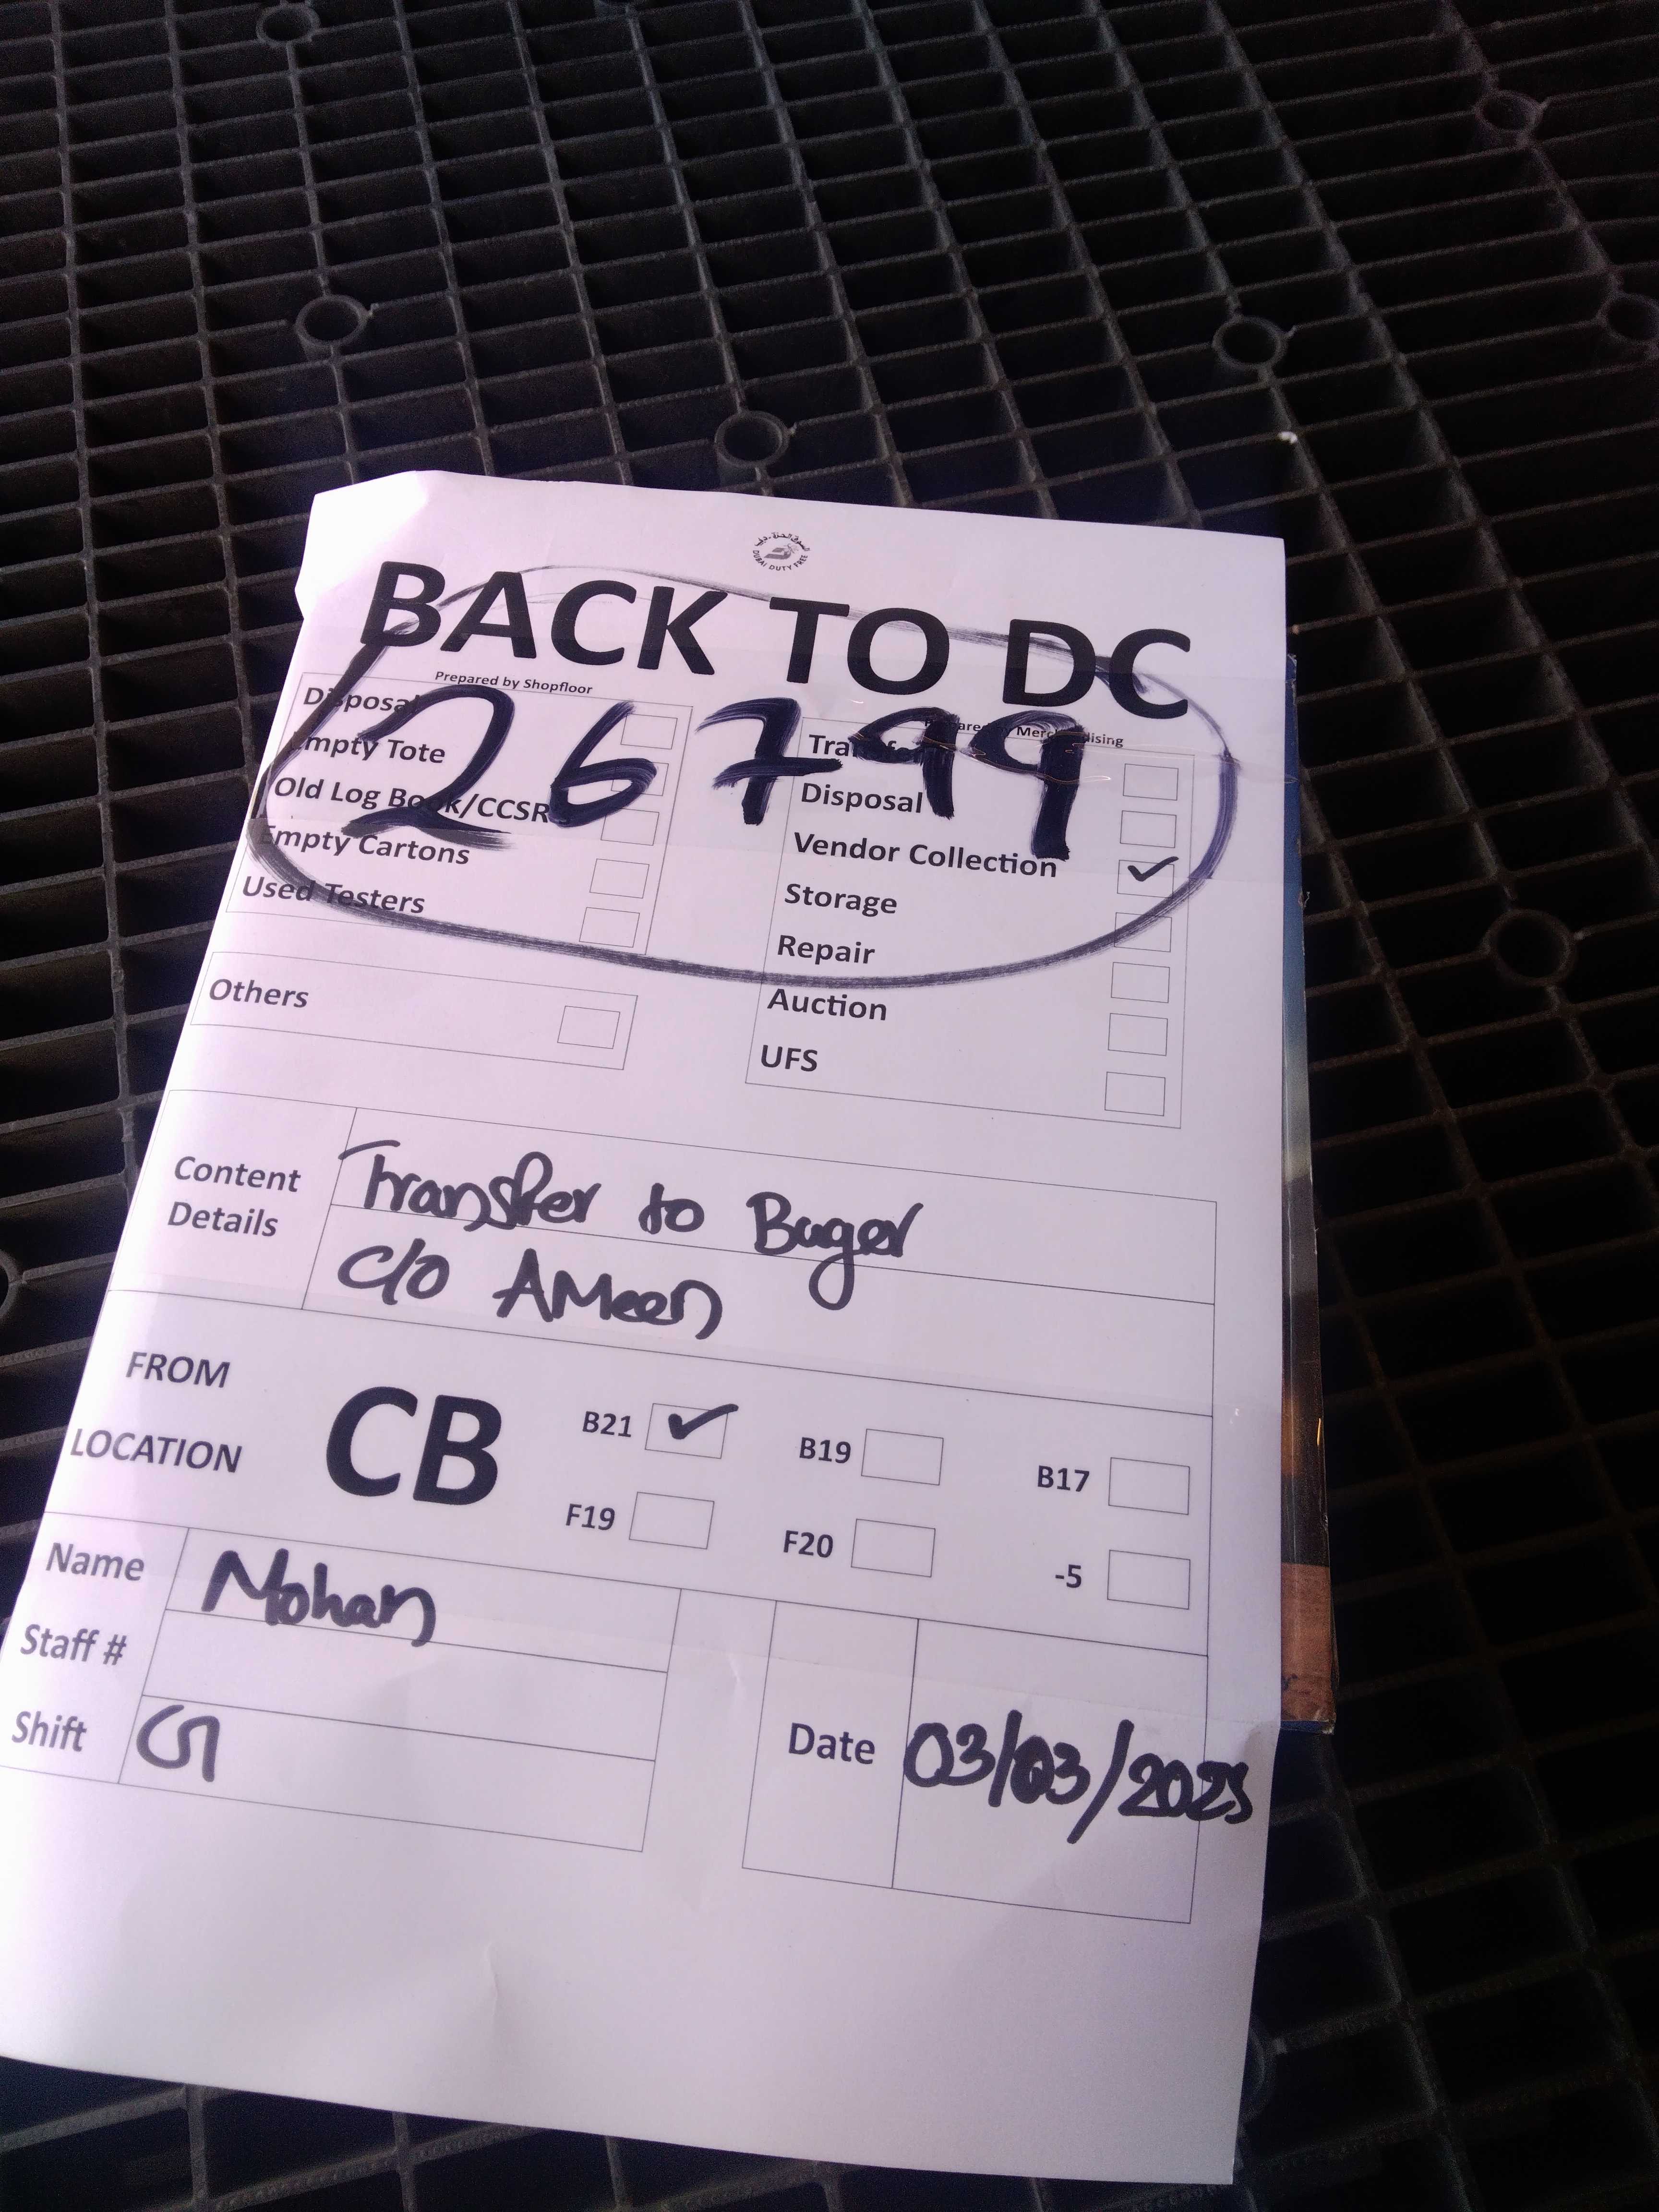 السوق الحرة - دبي
DUBAI DUTY FREE
BACK TO DC
Prepared by Shopfloor
Prepared by Merchandising
26799
Disposal
Empty Tote
Old Log Book/CCSR
Empty Cartons
Used Testers
Others
Transfer
Disposal
Vendor Collection
Storage
Repair
Auction
UFS
Content Details
Transfer to Buger
c/o AMeen
FROM LOCATION
CB
B21
B19
B17
F19
F20
-5
Name
Mohan
Staff #
Shift
G
Date
03/03/2025